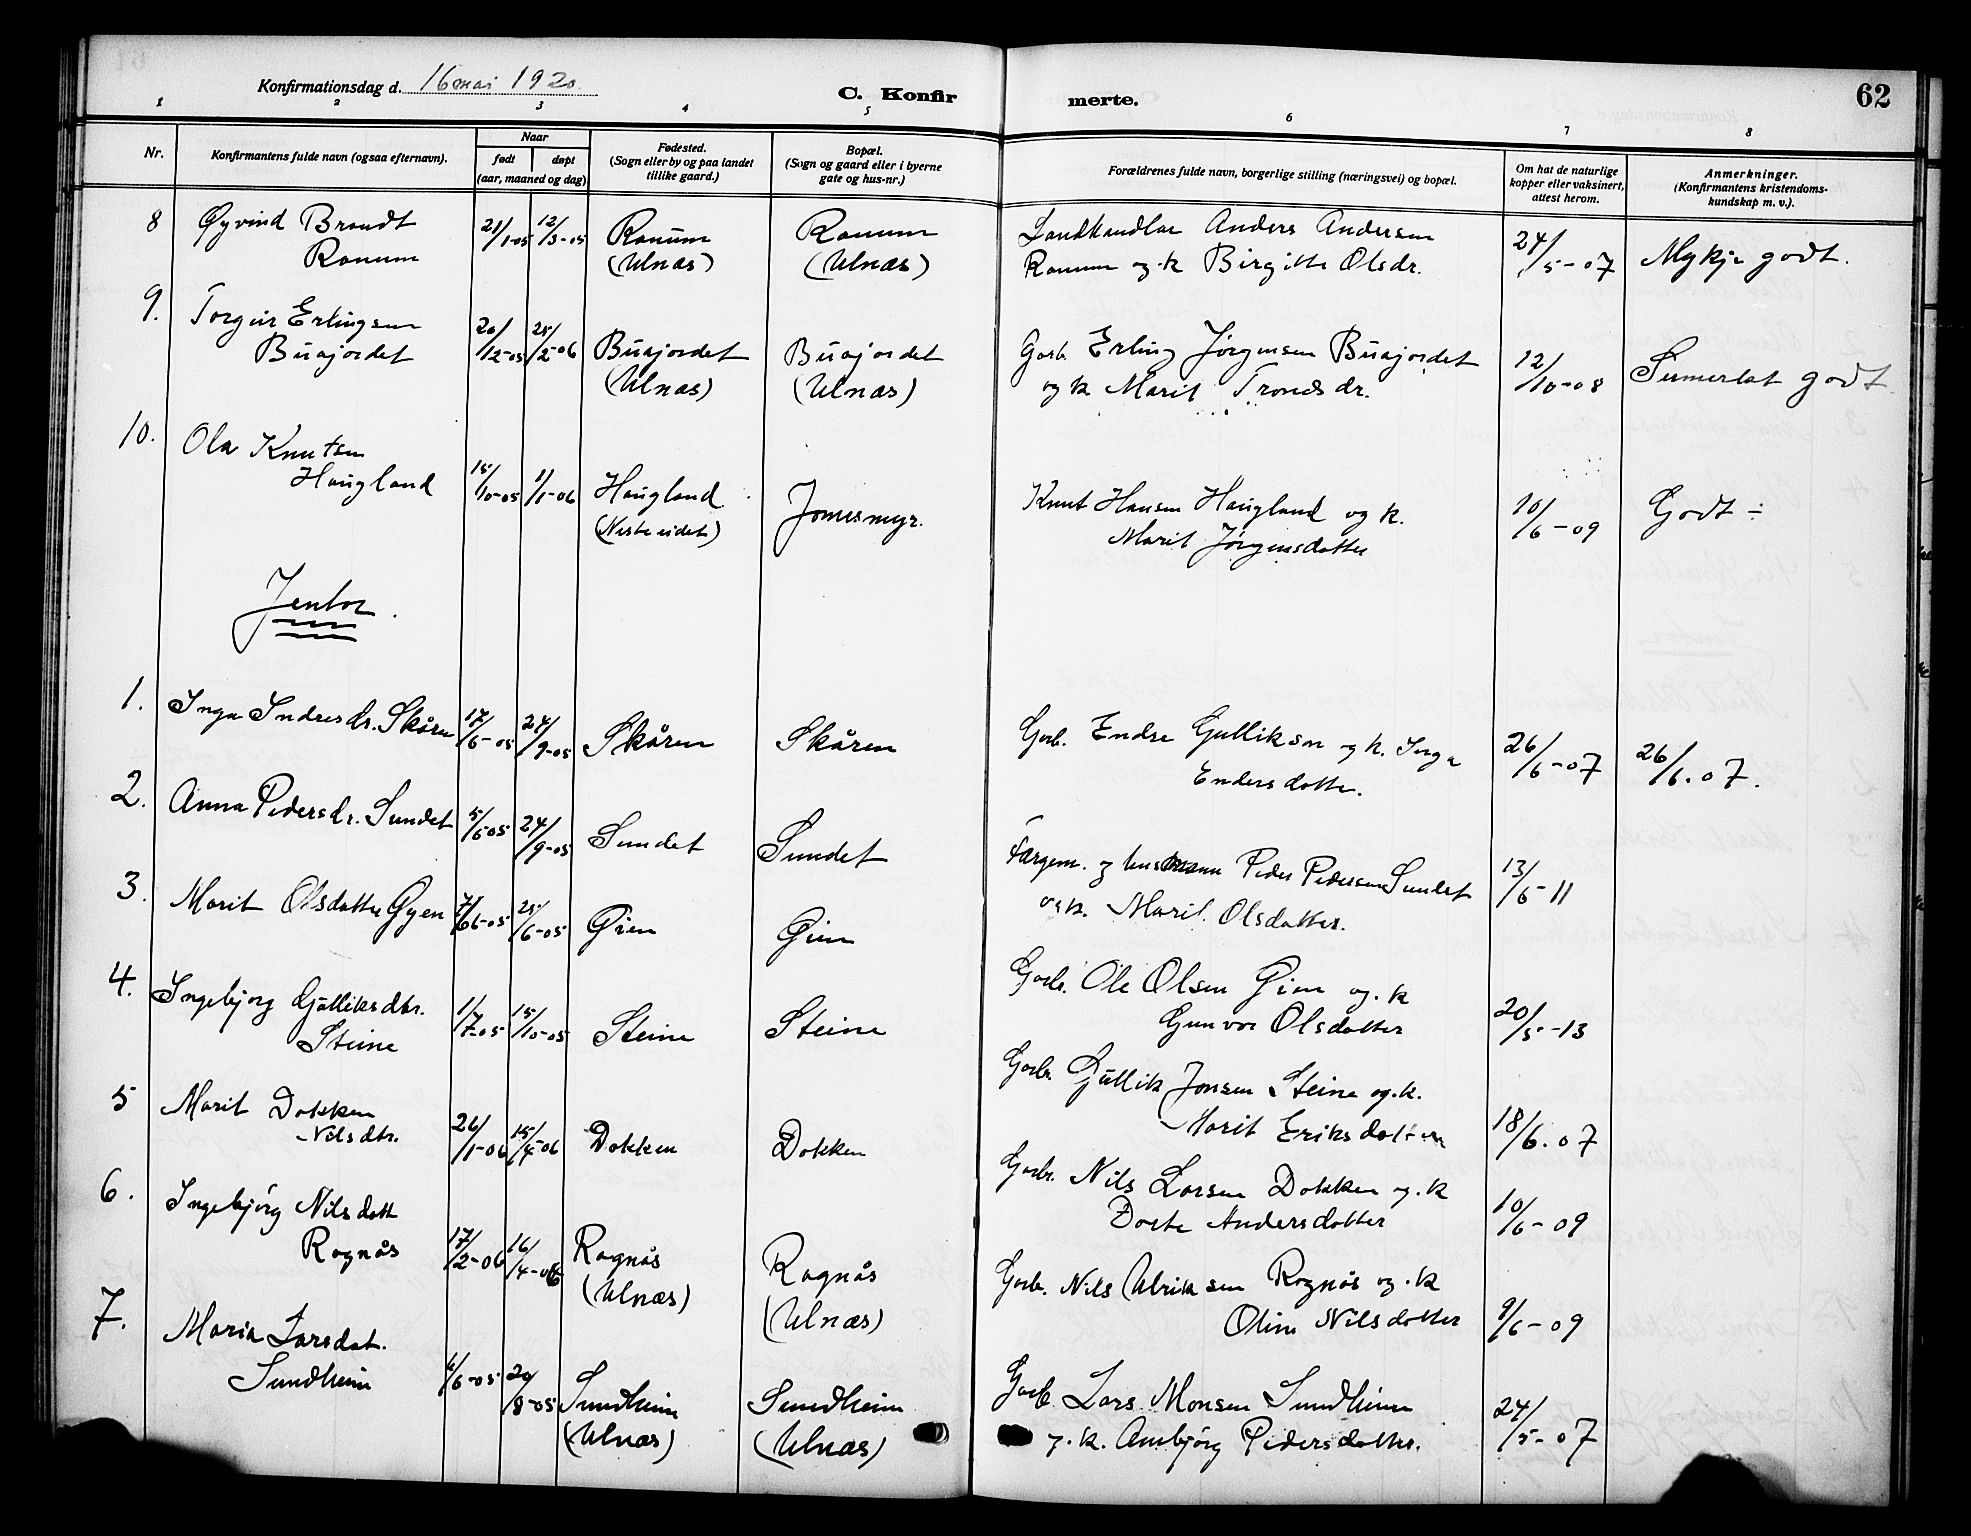 Konfirmationsdag d. 16 mai 1920.
C. Konfirmerte.
62
1 2 3 4 5 6 7 8
Nr.
Konfirmantens fulde navn (ogsaa efternavn).
Naar
født
døpt
(aar, maaned og dag)
Fødested.
(Sogn eller by og paa landet
tillike gaard.)
Bopæl.
(Sogn og gaard eller i byerne
gate og hus-nr.)
Forældrenes fulde navn, borgerlige stilling (næringsvei) og bopæl.
Om hat de naturlige
kopper eller vaksinert,
attest herom.
Anmerkninger.
(Konfirmantens kristendoms-
kundskap m. v.).
8 Øyvind Brandt 21/1-05 12/3-05 Ranum Ranum Landhandlar Anders Andersen 24/5-07 Mykje godt.
Ranum (Ulnæs) (Ulnæs) Ranum og k Birgitte Olsdr.
9. Torgeir Erlingsen 20/12-05 25/2-06 Buajordet Buajordet Garb. Erling Jørgensen Buajordet 12/10-08 Sumerlat godt
Buajordet (Ulnæs) (Ulnæs) og k Marit Trondsdr.
10. Ola Knutsen 15/10-05 1/1-06 Haugland Jomesmyr. Knut Hansen Haugland og k. 10/6-09 Godt ÷
Haugland (Nesteeidet) Marit Jørgensdotter
Jentor.
1. Inga Indresdr. Skåren 17/6-05 24/9-05 Skåren Skåren Garb. Endre Gulliksen og k. Inga 26/6-07 26/6.07.
Endersdotter.
2. Anna Pedersdr. Sundet 5/6-05 24/9-05 Sundet Sundet Færgem. og husmann Peder Pedersen Sundet 13/6-11
og k. Marit Olsdotter.
3. Marit Olsdotter Gyen 7/6-05 25/6-05 Gien Gien Garb. Ole Olsen Gien og. k 20/5-13
Gunvor Olsdotter
4. Ingebjorg Gulliksdtr. 1/7-05 15/10-05 Steine Steine Garb. Gullik Jonsen Steine og. k. 18/6.07
Steine Marit Eriksdotter
5 Marit Dokken 26/1-06 15/4-06 Dokken Dokken Garb. Nils Larsen Dokken og. k 10/6-09
Nilsdtr. Dorte Andersdotter
6. Ingebjörg Nilsdott 17/2-06 16/4-06 Rognås Rognås Garb. Nils Ulriksen Rognås og. k 9/6-09
Rognås (Ulnæs) (Ulnæs) Oline Nilsdotter
7. Maria Larsdot. 4/6-05 20/8-05 Sundheim Sundheim Garb. Lars Monsen Sundheim 24/5-07
Sundheim (Ulnæs) (Ulnæs) og. k. Ambjörg Pedersdotter.